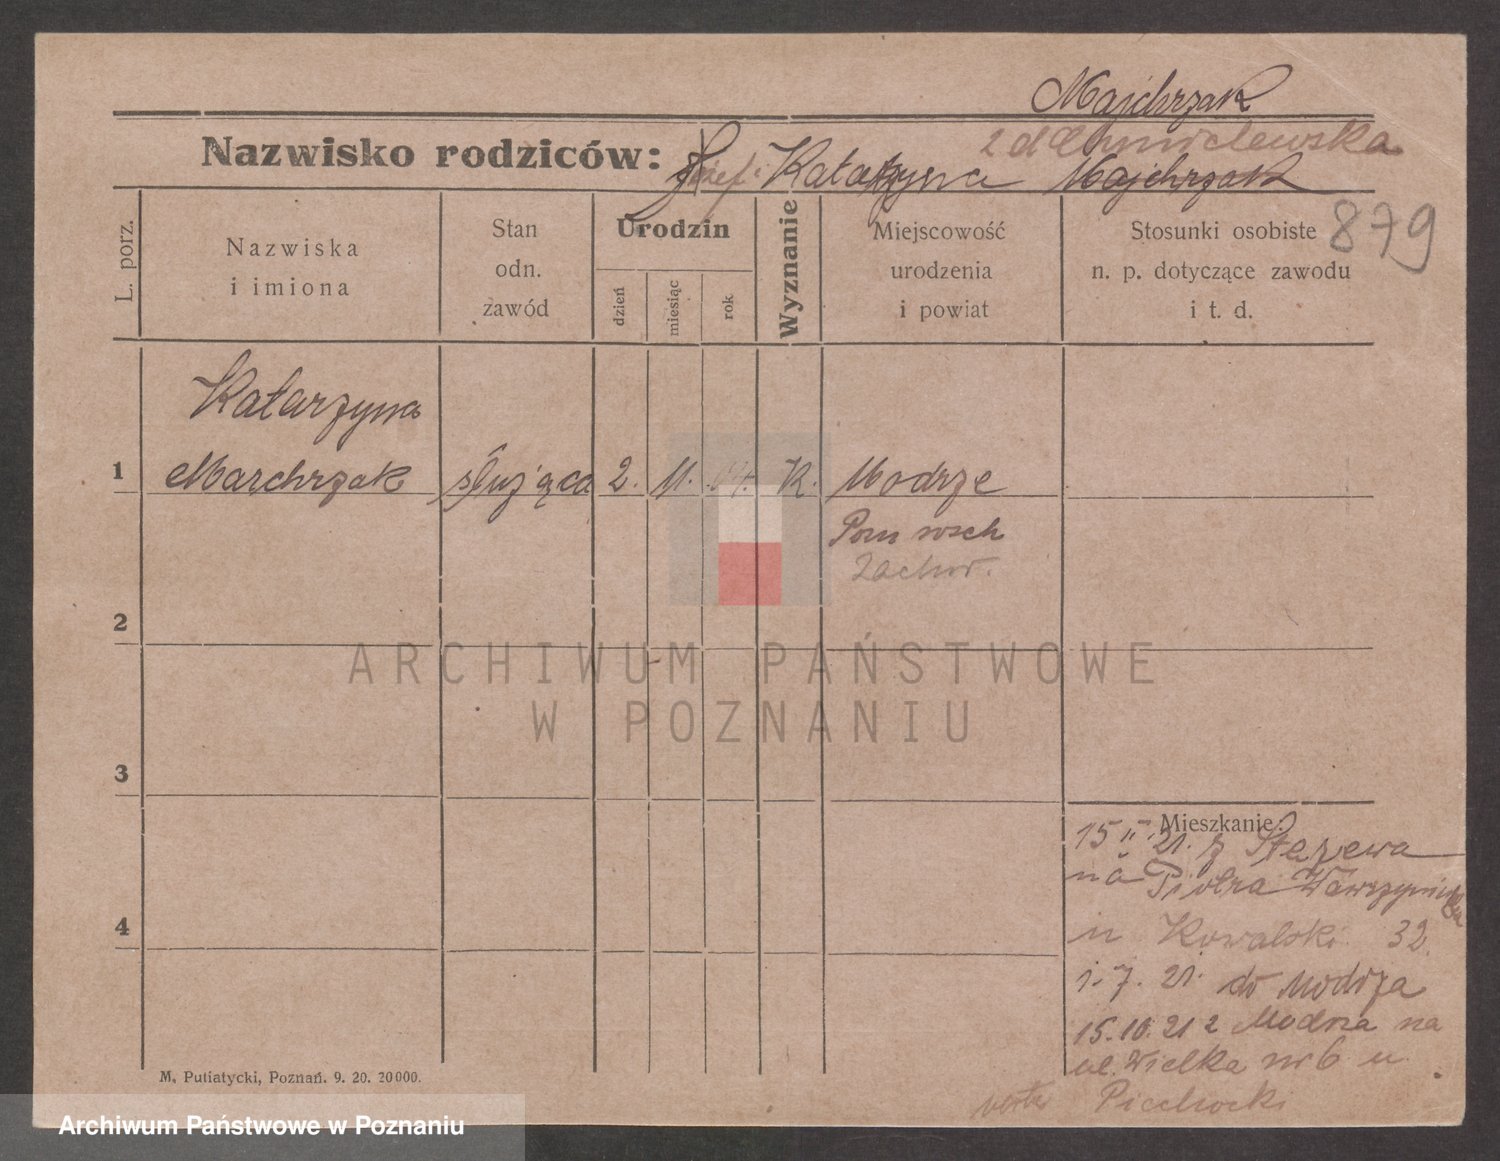 Majchrzak
z d Chmielewska
Nazwisko rodziców: Józef i Katarzyna Majchrzak
879
L. porz.
Nazwiska
i imiona
Stan
odn.
zawód
Urodzin
dzień
miesiąc
rok
Wyznanie
Miejscowość
urodzenia
i powiat
Stosunki osobiste
n. p. dotyczące zawodu
i t. d.
Katarzyna
1 Marchrzak służąca 2. 11. 04. K. Modrze
Pozn wsch
Zachw.
2
3
4
Mieszkanie:
15 II 21. z Stęzewa
na Piotra Wawrzyniaka
u Kowalski 32
1.7.21. do Modrza
15.10.21 z Modrza na
ul. Wielka nr 6 u
Piechocki
verte
M. Putiatycki, Poznań. 9. 20. 20000.
ARCHIWUM PAŃSTWOWE
W POZNANIU
Archiwum Państwowe w Poznaniu